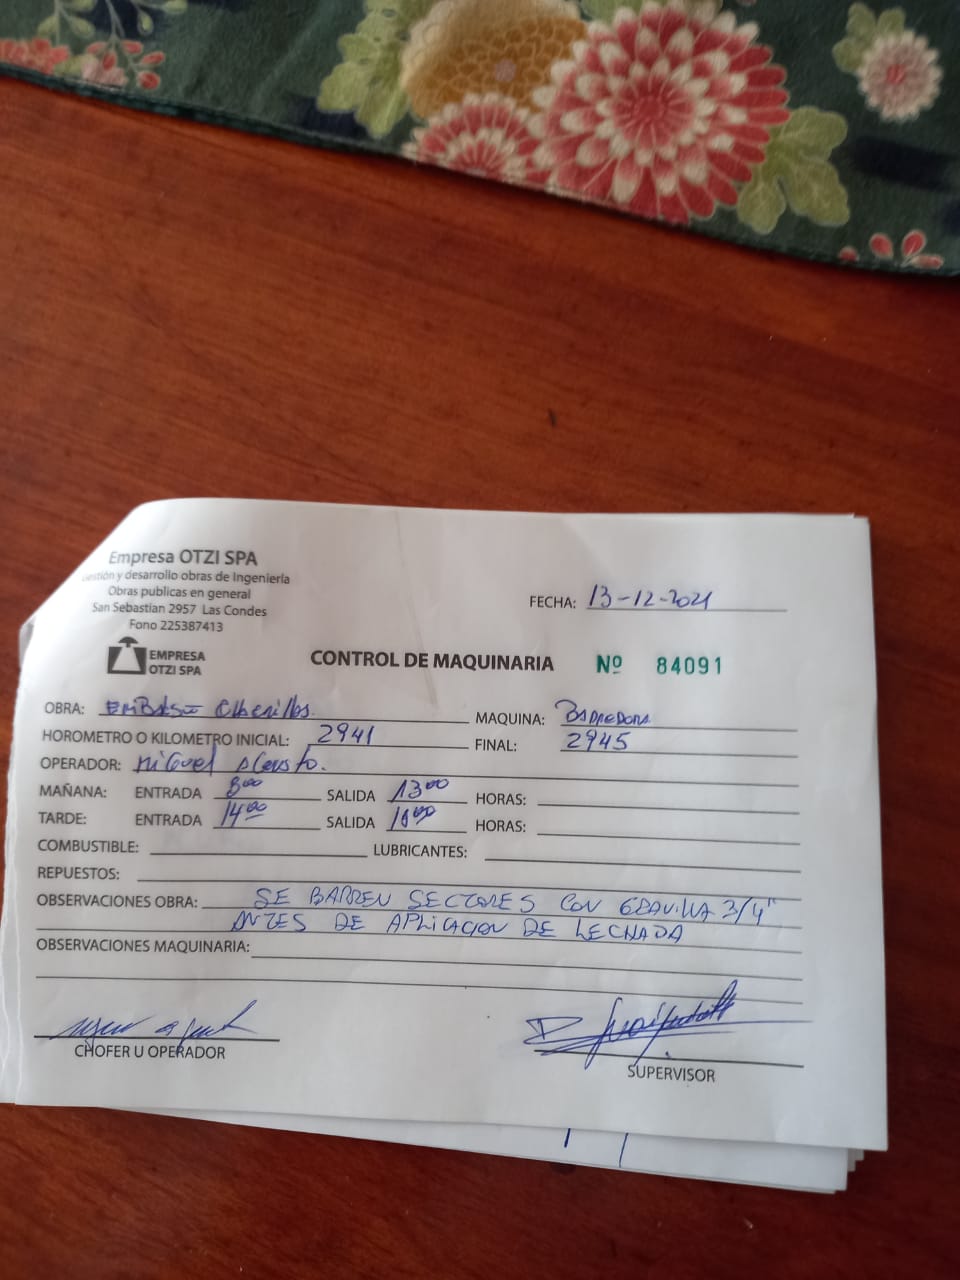 Empresa OTZI SPA
Gestión y desarrollo obras de Ingeniería
Obras publicas en general
San Sebastian 2957 Las Condes
Fono 225387413
EMPRESA
OTZI SPA
FECHA: 13-12-2021
CONTROL DE MAQUINARIA Nº 84091
OBRA: EMBALSE MAQUINA: Barredora
HOROMETRO O KILOMETRO INICIAL: 2941 FINAL: 2945
OPERADOR: Miguel
MAÑANA: ENTRADA 800 SALIDA 1300 HORAS:
TARDE: ENTRADA 1400 SALIDA HORAS:
COMBUSTIBLE: LUBRICANTES:
REPUESTOS:
OBSERVACIONES OBRA: SE BARREN SECTORES CON GRAVILLA 3/4"
ANTES DE APLICACION DE LECHADA
OBSERVACIONES MAQUINARIA:
CHOFER U OPERADOR
SUPERVISOR